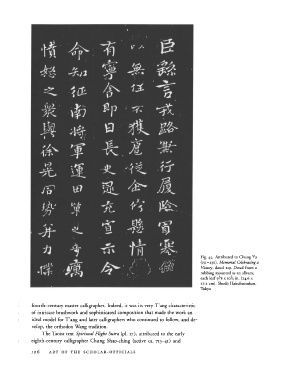 臣繇言戎路兼行履險冒寒
以無任不獲扈從企佇懸情
有寧舍即日長史逯充宣示令
命知征南將軍運田單之奇厲
憤怒之衆與徐晃同勢并力撲
Fig. 45. Attributed to Chung Yu
Memorial Celebrating a
Victory, dated 219. Detail from a
rubbing mounted in an album,
each leaf
Shodō Hakubutsukan,
Tokyo
fourth-century master calligrapher. Indeed, it was its very T'ang characteristic
of intricate brushwork and sophisticated composition that made the work an
ideal model for T'ang and later calligraphers who continued to follow, and de-
velop, the orthodox Wang tradition.
The Taoist text Spiritual Flight Sutra (pl. 17), attributed to the early
eighth-century calligrapher Chung Shao-ching (active ca. 713–41) and
126 ART OF THE SCHOLAR-OFFICIALS